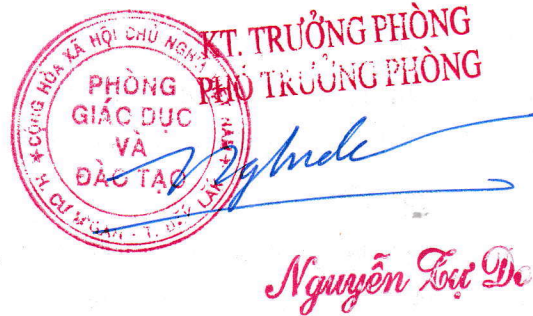 KT. TRƯỞNG PHÒNG
PHÓ TRƯỞNG PHÒNG
CỘNG HÒA XÃ HỘI CHỦ NGHĨA VIỆT NAM
PHÒNG
GIÁO DỤC
VÀ
ĐÀO TẠO
H. CƯ M'GAR - T. ĐẮK LẮK
Nguyễn Tự Do